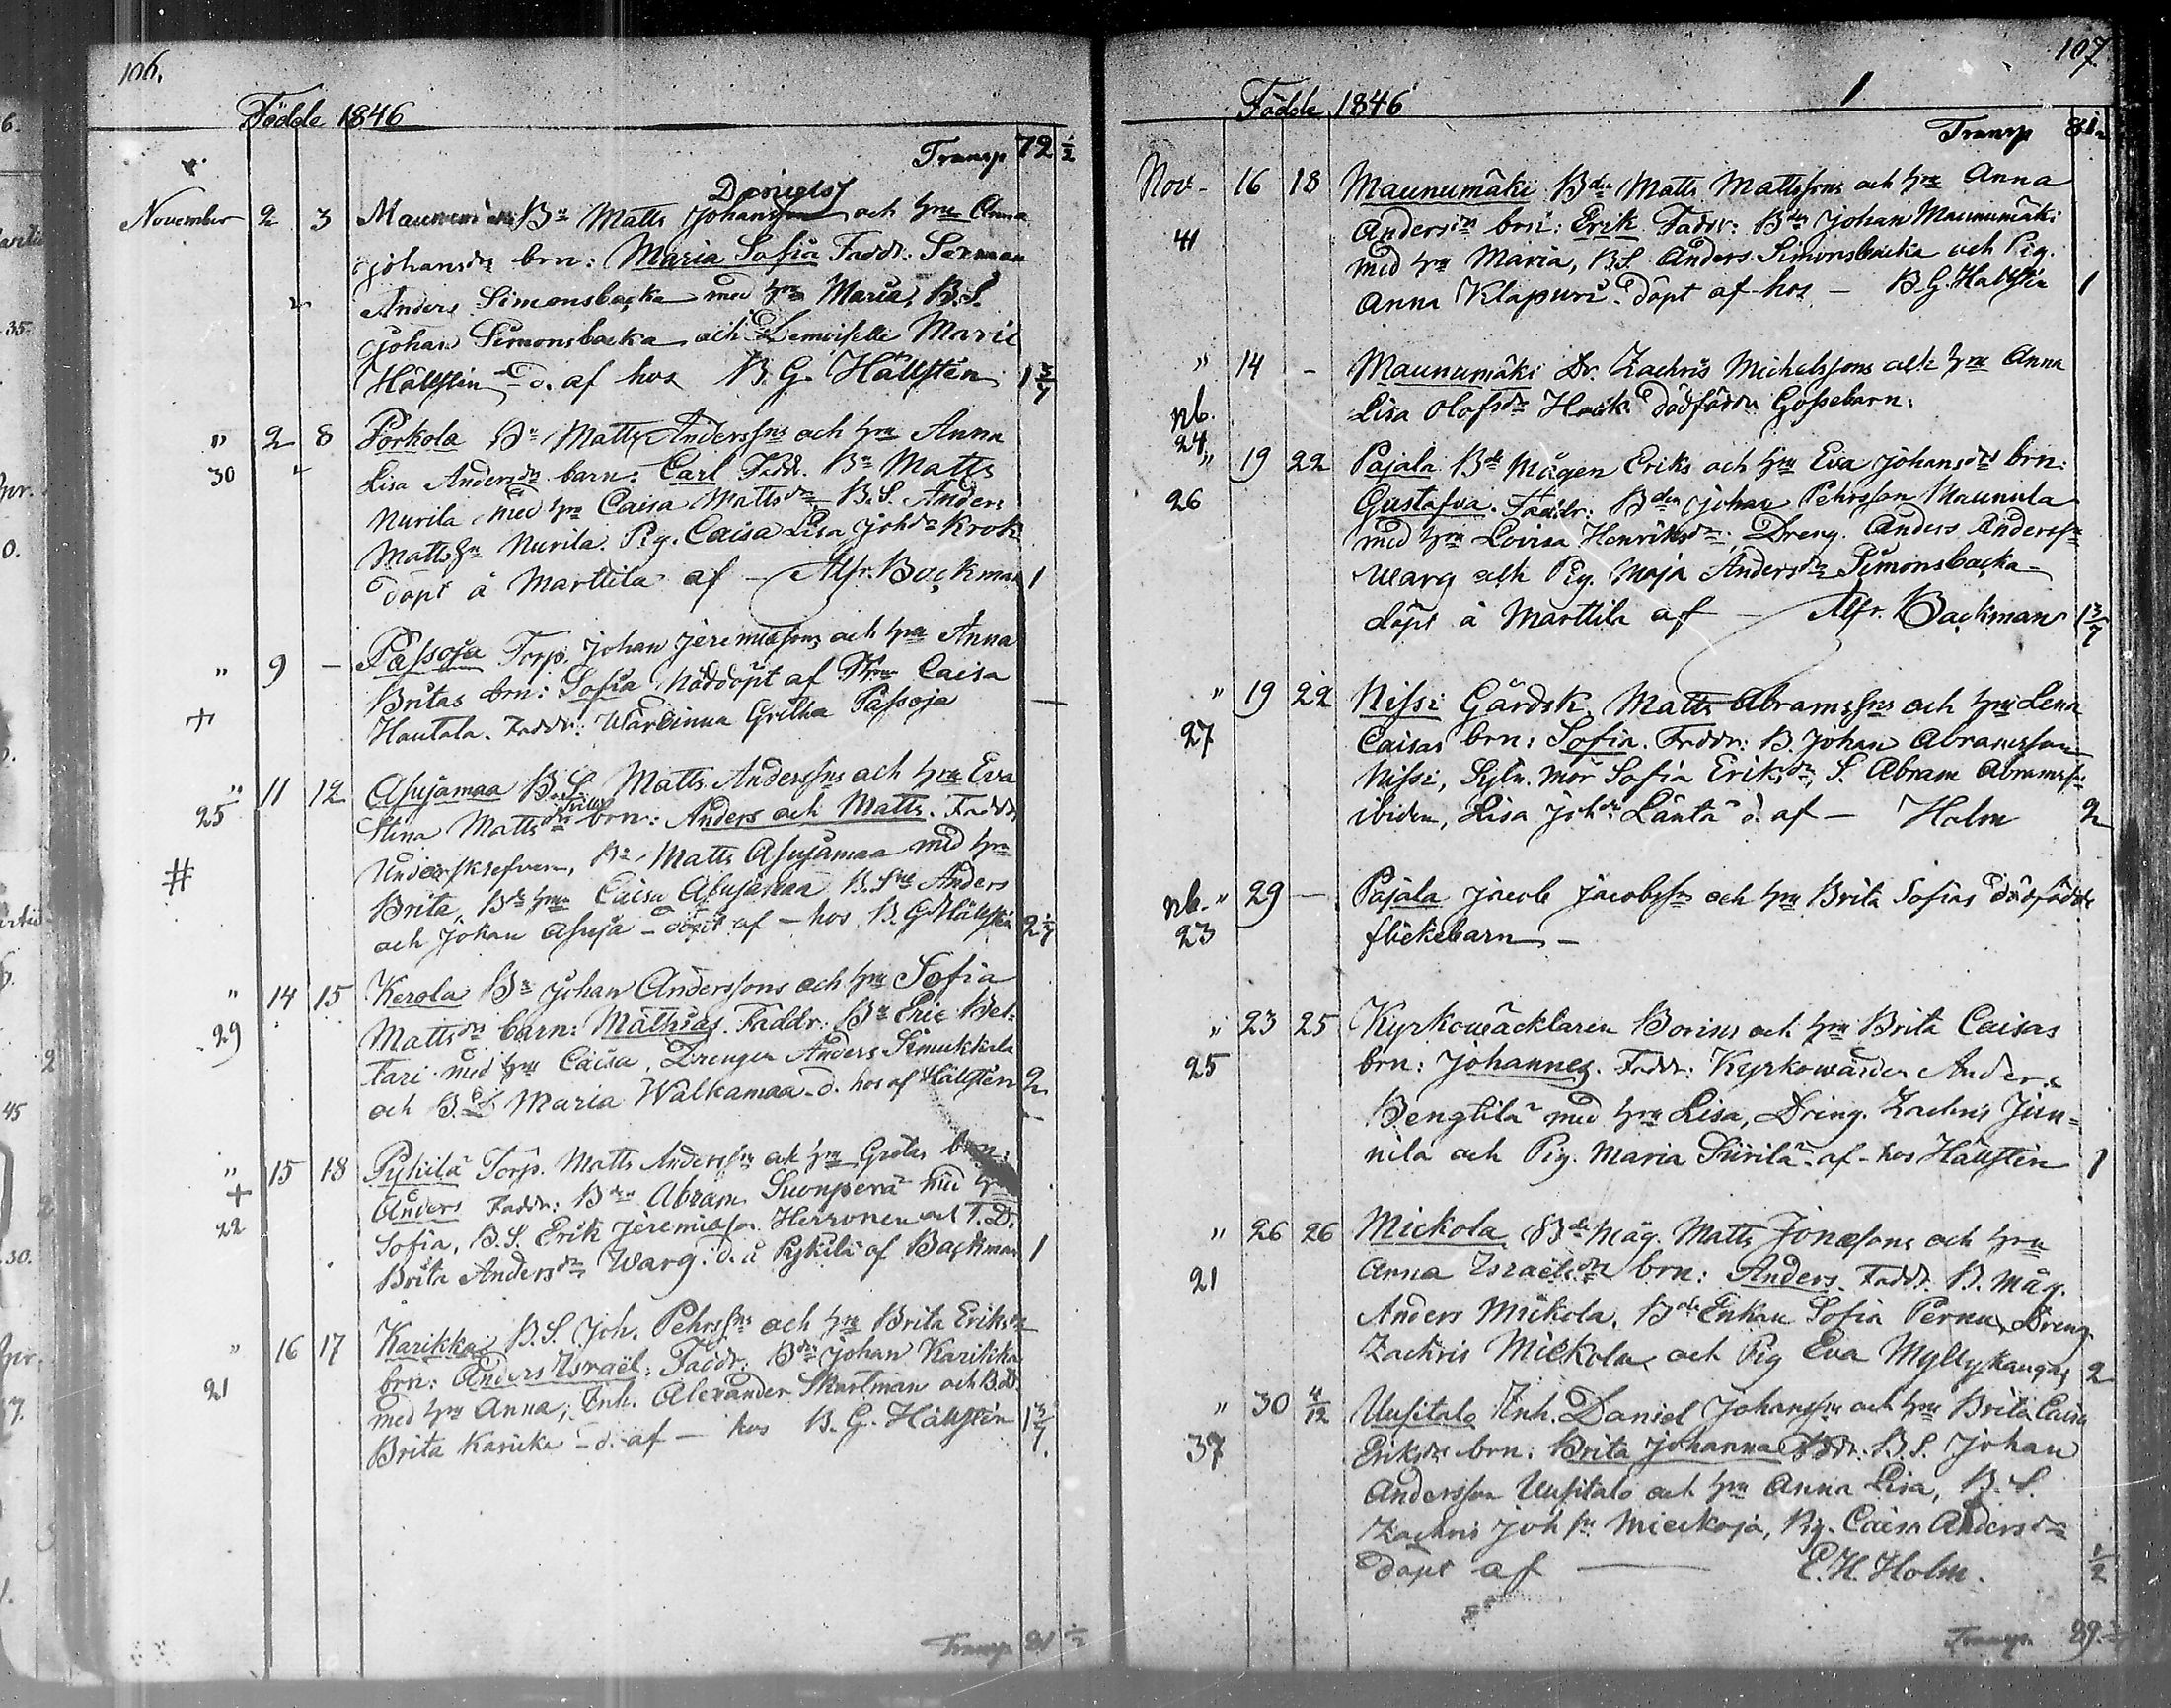 106.
Födde 1846
Transp 72 1/2
November 2 3 Maunumäki Bn Matts Johansson Daniels och hru Anna
Johansdr brn: Maria Sofia Faddr:
Anders Simonsbacka med hru Maria, B.S.
Johan Simonsbacka och Demoiselle Marie
Hällsten d. af hos B. G. Hällstén 1 3/7
" 2 8 Porkola Bn Matts Anderssns och hru Anna
30 Lisa Andersdr barn: Carl Faddr. Bn Matts
Nurila med hru Caisa Mattsdr B.S. Anders
Mattssn Nurila. Pig. Caisa Lisa Johdr Krok
döpt å Marttila af – Alfr. Backman 1
" 9 – Passoja Torp. Johan Jeremiassons och hru Anna
Britas brn: Sofia Nöddöpt af Hru Caisa
+ Hautala. Faddr: Wärdinna Gretha Passoja –
" 11 12 Asujamaa B.S. Matts Anderssns och hru Eva
25 Stina Mattsdrs Tvill. brn: Anders och Matts. Faddr
Underskrefven, Bn Matts Asujamaa med hru
# Brita, Bde hru Caisa Asujamaa B.Sne Anders
och Johan Asuja – döpt af – hos B. G. Hällstén 2
" 14 15 Kerola Bn Johan Anderssons och hru Sofia
29 Mattsdrs barn: Mathias. Faddr: Bn Eric Bel-
tari med hru Caisa, Drengen Anders Simukkala
och B.D. Maria Walkamaa d. hos af Hällstén 2
" 15 18 Pykilä Torp. Matts Anderssns och hru Gretas brn:
+ Anders Faddr: Bdn Abram Suonperä med hru
22 Sofia, B.S. Erik Jeremiasson Herronen och T.D.
Brita Andersdr Warg. d. å Pykilä af Backman 1
" 16 17 Karikka B.S. Joh. Pehrssns och hru Brita Eriksdr
21 brn: Anders Israël. Faddr: Bdn Johan Karikka
med hru Anna, Inh. Alexander Skurtman och B.D.
Brita Karikka – d. af – hos B. G. Hällstén 1 3/7
Transp 81 1/2
107
Födde 1846
Transp 81 1/2
Novr 16 18 Maunumäki Bdn Matts Mattssons och hru Anna
41 Andersdrs brn: Erik Faddr: Bdn Johan Maunumäki
med hru Maria, B.S. Anders Simonsbacka och Pig.
Anna Klapuri. döpt af hos – B. G. Hällstén 1
" 14 – Maunumäki Dr. Zachris Michelssons och hru Anna
nb. Lisa Olofsdr Hack dödfödda Gossebarn.
24
" 19 22 Pajala Bde Mågen Eriks och hru Eva Johansdrs brn:
26 Gustafva. Faddr: Bdn Johan Pehrsson Maunula
med hru Lovisa Henriksdr, Dreng. Anders Anderssn
Warg och Pig. Maja Andersdr Simonsbacka
döpt å Marttila af – Alfr. Backman 1 3/7
" 19 22 Nissi Gårdsk. Matts Abramssns och hru Lena
27 Caisas brn: Sofia. Faddr: B. Johan Abramsson
Nissi, Sytn. mor Sofia Eriksdr, S. Abram Abramssn
ibidem, Lisa Johdr Länta d. af – Holm 2
nb. " 29 – Pajala Jacob Jacobssn och hru Brita Sofias dödfödde
23 flickebarn –
" 23 25 Kyrkowäcktaren Borins och hru Brita Caisas
25 brn: Johannes. Faddr: Kyrkowärden Anders
Bengtilä med hru Lisa, Dreng. Zachris Jun-
nila och Pig. Maria Siirilä. af – hos Hällstén 1
" 26 26 Mickola Bde Måg. Matts Jonassons och hru
21 Anna Israelsdrs brn: Anders. Faddr. B. Måg.
Anders Mickola, Bde Enkan Sofia Pernu, Dreng
Zachris Mickola och Pig Eva Myllykangas 2
" 30 4/12 Uusitalo Inh. Daniel Johanssns och hru Brita Caisa
37 Eriksdrs brn: Brita Johanna Faddr. B.S. Johan
Andersson Uusitalo och hru Anna Lisa, B.S.
Zachris Joh sn Mieckoja, Pig. Caisa Andersdr
döpt af – E. H. Holm. 1/2
Transp. 89